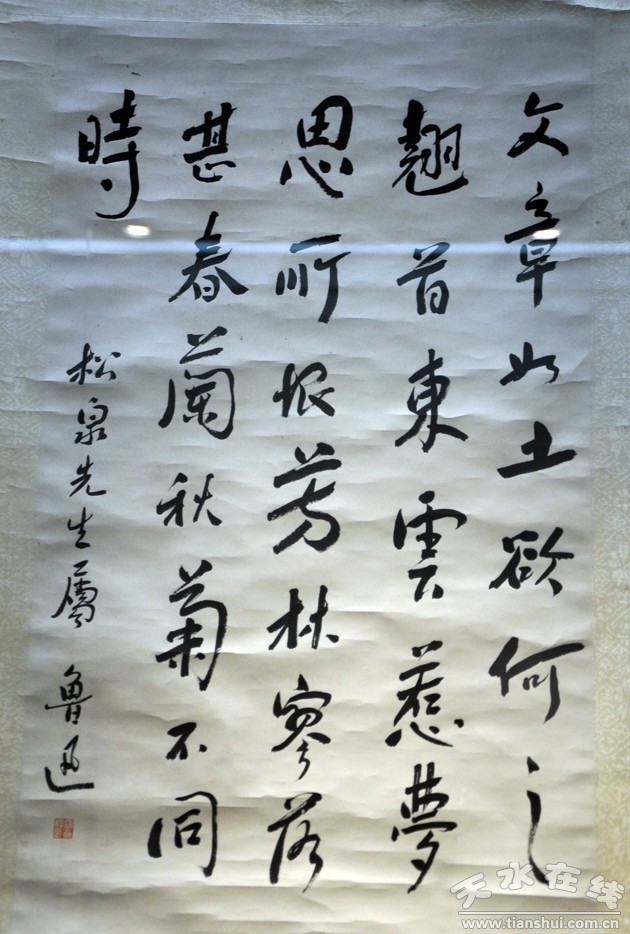 文章如土欲何之
翹首東雲惹夢
思所恨芳林寥落
甚春蘭秋菊不同
時
松泉先生属
魯迅
天水在线
www.tianshui.com.cn